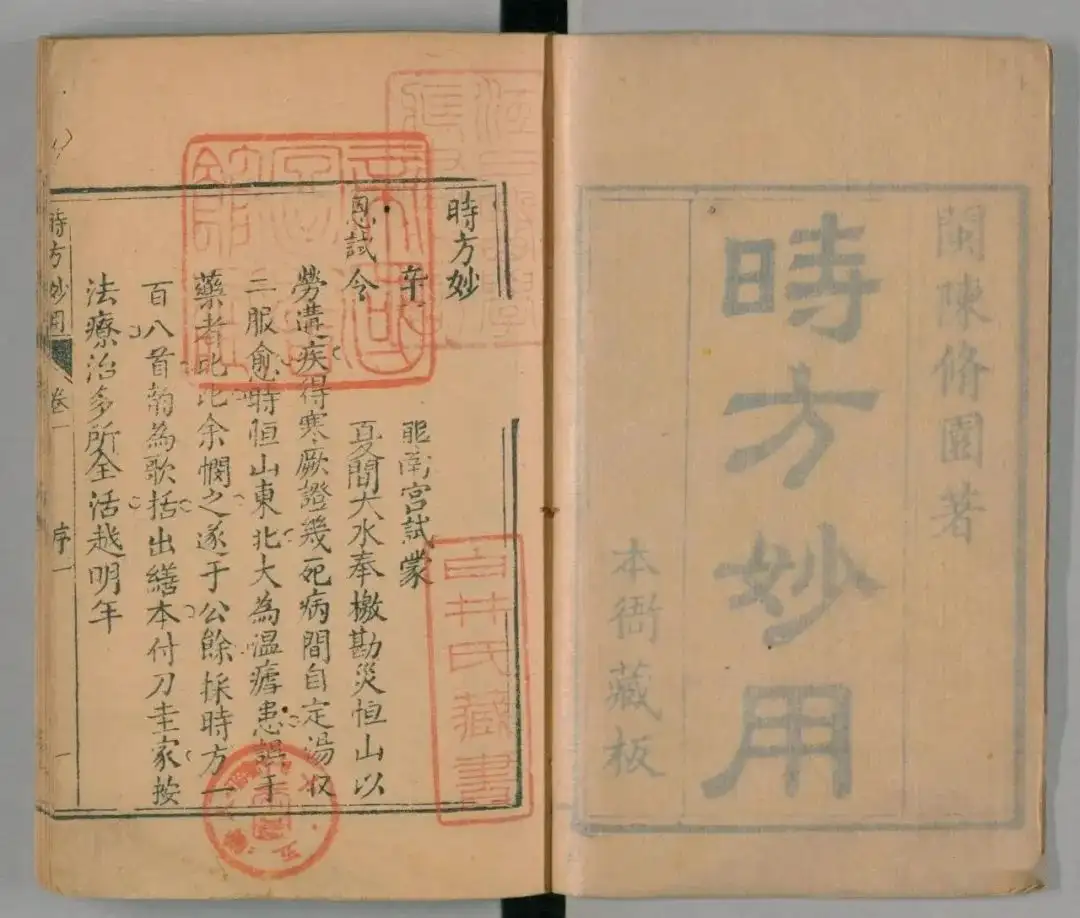 閩陳脩園著
時方妙用
本衙藏板
時方妙
辛 南宮試蒙
恩試令 夏間大水奉檄勘災恒山以
勞遘疾得寒厥證幾死病間自定湯
三服愈時恒山東北大為溫瘧患誤于
藥者比比余憫之遂于公餘採時方一
百八首韵為歌括出繕本付刀圭家按
法療治多所全活越明年
時方妙用 卷一 序一 一
白井氏藏書